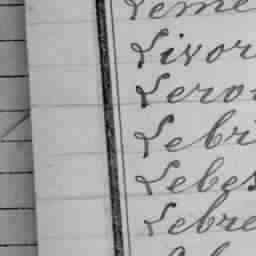 Leme
Livor
Leroi
Lebri
Lebes
Lebre